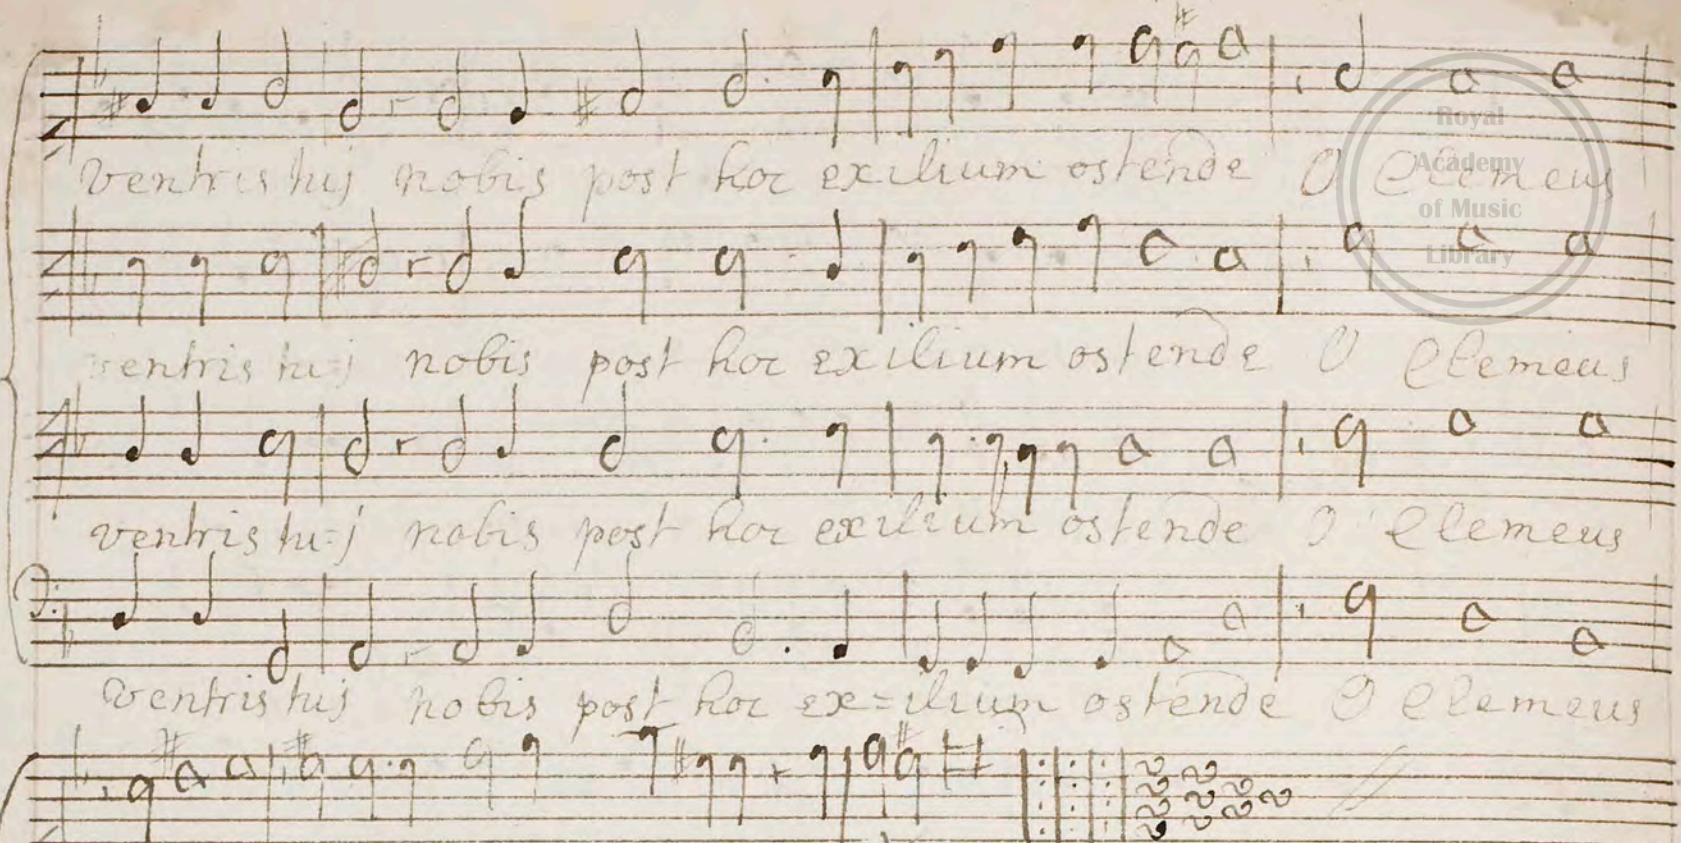 ventris tuj nobis post hoc exilium ostende O Clemeus
Royal
Academy
of Music
Library
ventris tu=j nobis post hoc exilium ostende O Clemeus
ventris tu=j nobis post hoc exilium ostende O Clemeus
ventris tuj nobis post hoc ex=ilium ostende O Clemeus